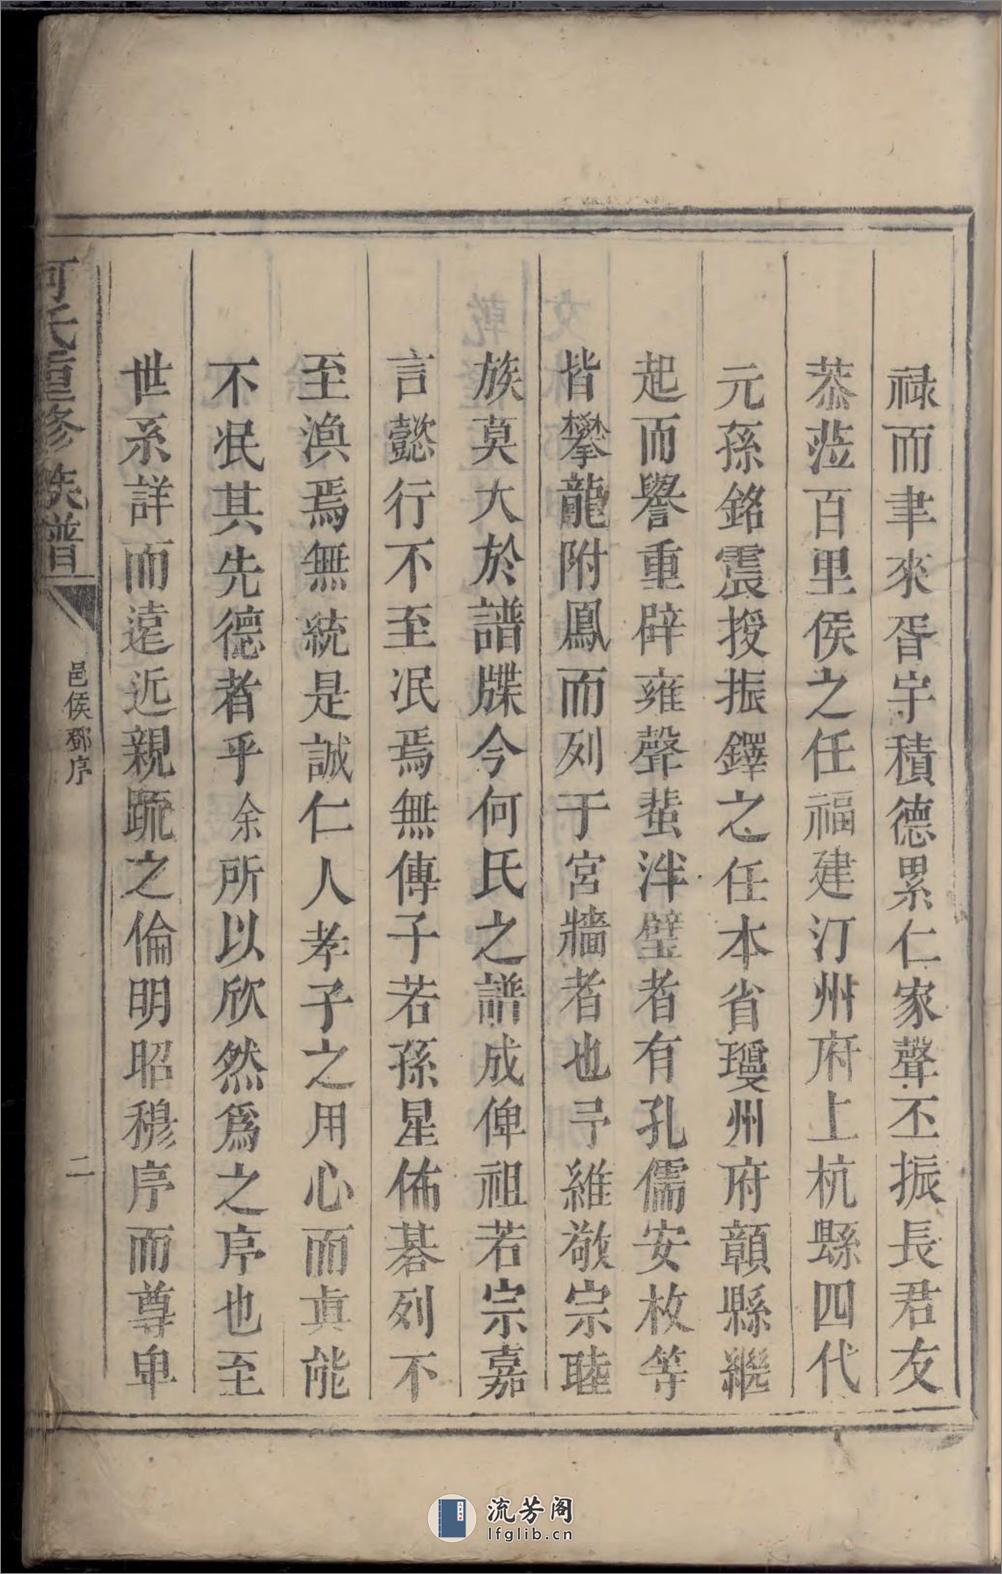 禄而聿來胥宇積德累仁家聲丕振長君友
恭蒞百里侯之任福建汀州府上杭縣四代
元孫銘震授振鐸之任本省瓊州府贛縣繼
起而譽重辟雍聲蜚泮璧者有孔儒安枚等
皆攀龍附鳳而列于宮牆者也予維敬宗睦
族莫大於譜牒今何氏之譜成俾祖若宗嘉
言懿行不至泯焉無傳子若孫星佈碁列不
至渙焉無統是誠仁人孝子之用心而真能
不泯其先德者乎余所以欣然爲之序也至
世系詳而遠近親踈之倫明昭穆序而尊卑
何氏重修族譜
邑侯鄧序
二
流芳阁
lfglib.cn